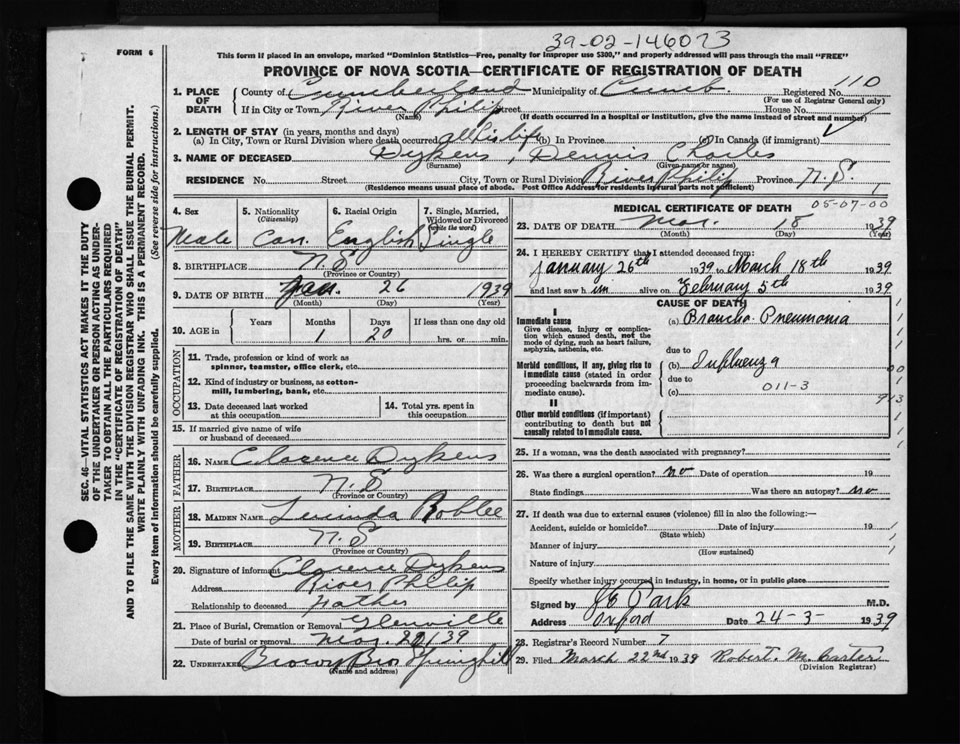 39-02-146073
FORM 6
This form if placed in an envelope, marked "Dominion Statistics—Free, penalty for improper use $300," and properly addressed will pass through the mail "FREE"
PROVINCE OF NOVA SCOTIA—CERTIFICATE OF REGISTRATION OF DEATH
110
1. PLACE OF DEATH
County of Cumberland Municipality of Cumb. Registered No.
(For use of Registrar General only)
If in City or Town River Philip Street House No.
(Name) (If death occurred in a hospital or institution, give the name instead of street and number)
2. LENGTH OF STAY (in years, months and days)
(a) In City, Town or Rural Division where death occurred all his life (b) In Province (c) In Canada (if immigrant)
3. NAME OF DECEASED Dykens, Dennis Charles
(Surname) (Given name or names)
RESIDENCE No. Street City, Town or Rural Division River Philip Province N.S.
(Residence means usual place of abode. Post Office Address for residents in rural parts not sufficient)
05-07-00
4. Sex
Male
5. Nationality (Citizenship)
Can.
6. Racial Origin
English
7. Single, Married, Widowed or Divorced (write the word)
Single
8. BIRTHPLACE N.S
(Province or Country)
9. DATE OF BIRTH Jan. 26 1939
(Month) (Day) (Year)
10. AGE in
Years Months Days If less than one day old
1 20 hrs. or min.
OCCUPATION
11. Trade, profession or kind of work as
spinner, teamster, office clerk, etc.
12. Kind of industry or business, as cotton-
mill, lumbering, bank, etc.
13. Date deceased last worked
at this occupation
14. Total yrs. spent in
this occupation
15. If married give name of wife
or husband of deceased
FATHER
16. NAME Clarence Dykens
17. BIRTHPLACE N.S
(Province or Country)
MOTHER
18. MAIDEN NAME Lucinda Roblee
19. BIRTHPLACE N.S
(Province or Country)
20. Signature of informant Clarence Dykens
Address River Philip
Relationship to deceased Father
21. Place of Burial, Cremation or Removal Glenville
Date of burial or removal Mar. 20/39
22. UNDERTAKER Brown Bros Springhill
(Name and address)
MEDICAL CERTIFICATE OF DEATH
23. DATE OF DEATH Mar. 18 1939
(Month) (Day) (Year)
24. I HEREBY CERTIFY that I attended deceased from:
January 26th 1939 to March 18th 1939
and last saw him alive on February 5th 1939
CAUSE OF DEATH
I
Immediate cause
Give disease, injury or complica-
tion which caused death, not the
mode of dying, such as heart failure,
asphyxia, asthenia, etc.
(a) Broncho-Pneumonia
due to
Morbid conditions, if any, giving rise to
immediate cause (stated in order
proceeding backwards from im-
mediate cause).
(b) Influenza
due to
(c)
011-3
913
II
Other morbid conditions (if important)
contributing to death but not
causally related to immediate cause.
25. If a woman, was the death associated with pregnancy?
26. Was there a surgical operation? no Date of operation 19
State findings Was there an autopsy? no
27. If death was due to external causes (violence) fill in also the following:—
Accident, suicide or homicide? Date of injury 19
(State which)
Manner of injury
(How sustained)
Nature of injury
Specify whether injury occurred in industry, in home, or in public place
Signed by JE Park M.D.
Address Oxford Date 24-3- 1939
28. Registrar's Record Number 7
29. Filed March 22nd 1939 Robert. M. Carter
(Division Registrar)
SEC. 46—VITAL STATISTICS ACT MAKES IT THE DUTY
OF THE UNDERTAKER OR PERSON ACTING AS UNDER-
TAKER TO OBTAIN ALL THE PARTICULARS REQUIRED
IN THE "CERTIFICATE OF REGISTRATION OF DEATH"
AND TO FILE THE SAME WITH THE DIVISION REGISTRAR WHO SHALL ISSUE THE BURIAL PERMIT.
WRITE PLAINLY WITH UNFADING INK. THIS IS A PERMANENT RECORD.
Every item of information should be carefully supplied. (See reverse side for instructions.)